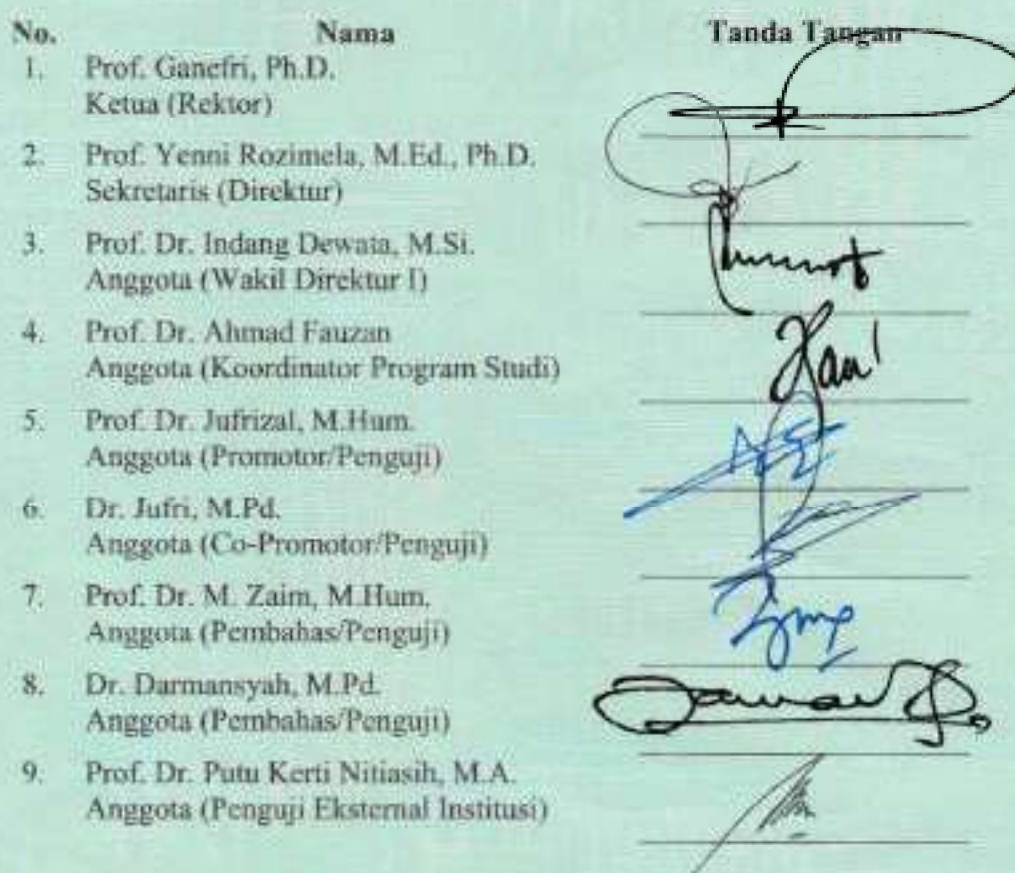 No. Nama Tanda Tangan
1. Prof. Ganefri, Ph.D.
Ketua (Rektor)
2. Prof. Yenni Rozimela, M.Ed., Ph.D.
Sekretaris (Direktur)
3. Prof. Dr. Indang Dewata, M.Si.
Anggota (Wakil Direktur I)
4. Prof. Dr. Ahmad Fauzan
Anggota (Koordinator Program Studi)
5. Prof. Dr. Jufrizal, M.Hum.
Anggota (Promotor/Penguji)
6. Dr. Jufri, M.Pd.
Anggota (Co-Promotor/Penguji)
7. Prof. Dr. M. Zaim, M.Hum.
Anggota (Pembahas/Penguji)
8. Dr. Darmansyah, M.Pd.
Anggota (Pembahas/Penguji)
9. Prof. Dr. Putu Kerti Nitiasih, M.A.
Anggota (Penguji Eksternal Institusi)